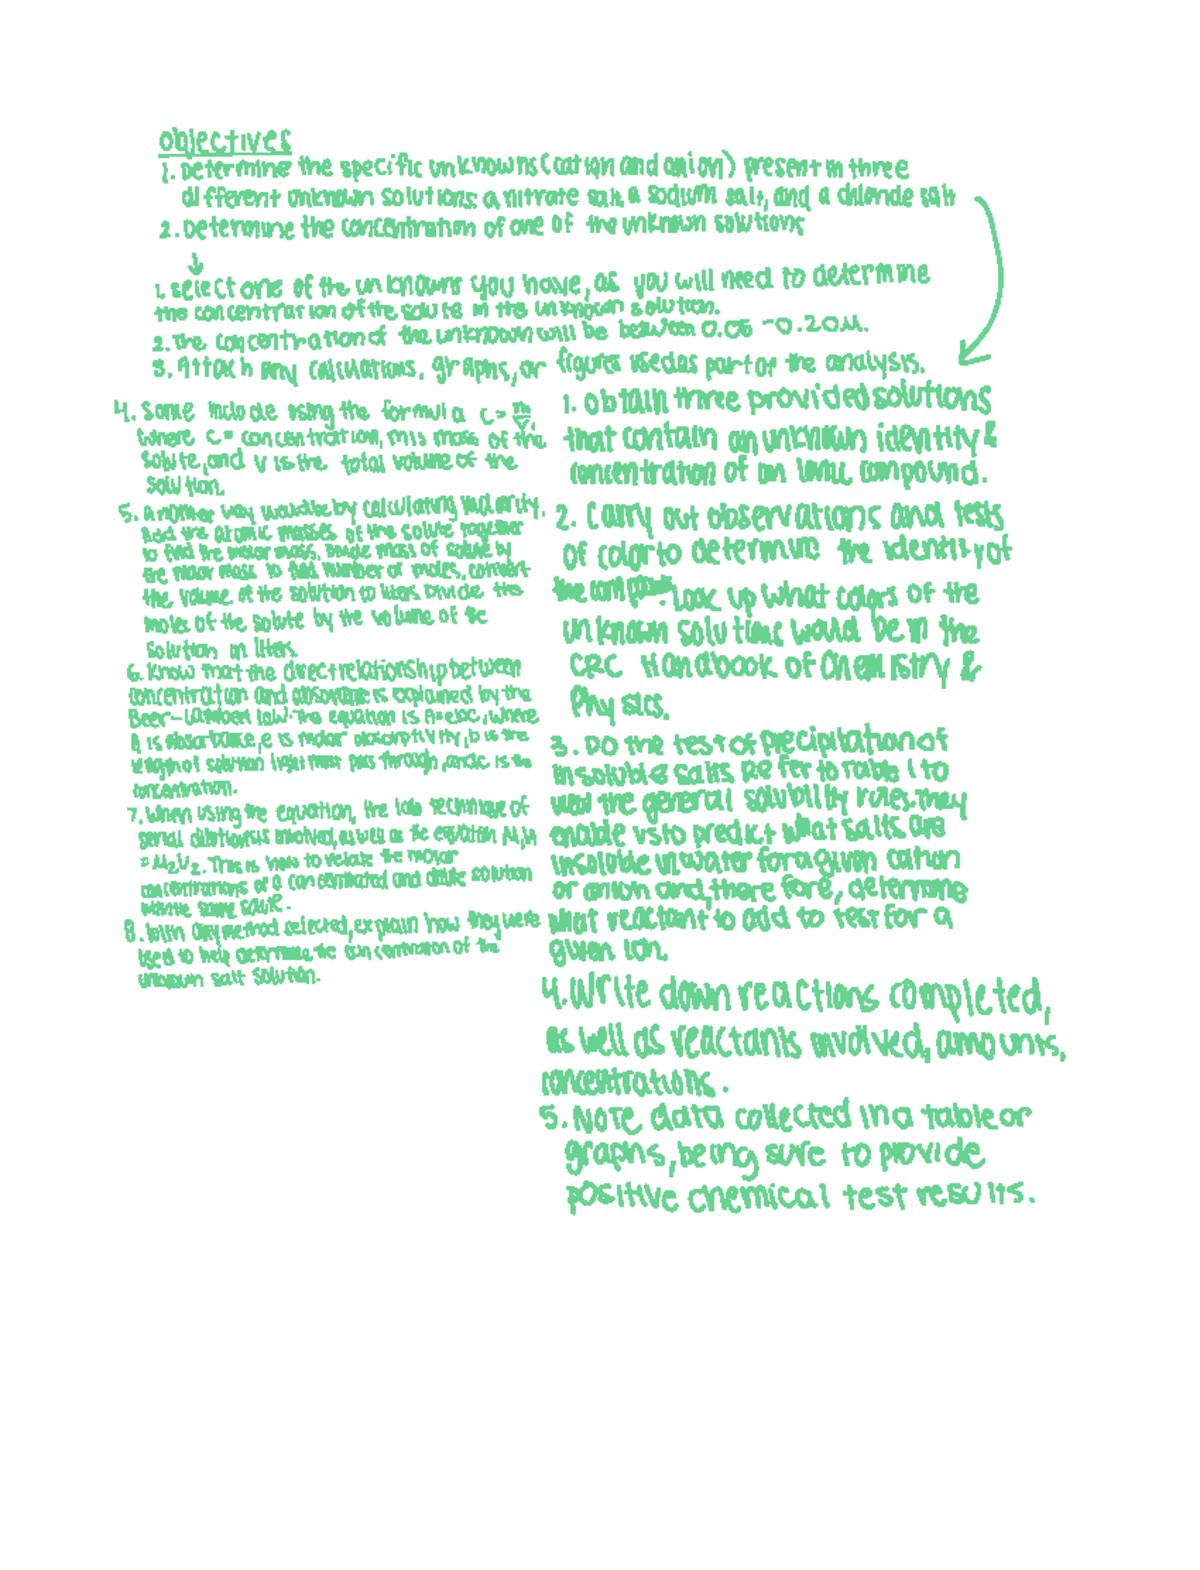 objectives
1. Determine the specific unknowns (cation and anion) present in three
different unknown solutions: a nitrate salt, a sodium salt, and a chloride salt
2. Determine the concentration of one of the unknown solutions
↓
1. select one of the unknowns you have, as you will need to determine
the concentration of the solute in the unknown solution.
2. The concentration of the unknown will be between 0.05 - 0.20M.
3. Attach any calculations, graphs, or figures used as part of the analysis.
4. Some include using the formula c = m/v,
where c = concentration, m is mass of the
solute, and v is the total volume of the
solution.
5. another way would be by calculating molarity.
Add the atomic masses of the solute together
to find the molar mass. Divide mass of solute by
the molar mass to find number of moles, convert
the volume of the solution to liters. Divide the
moles of the solute by the volume of the
solution in liters.
6. Know that the direct relationship between
concentration and absorbance is explained by the
Beer-Lambert law. The equation is A=ebc, where
A is absorbance, e is molar absorptivity, b is the
length of solution light must pass through, and c is the
concentration.
7. When using the equation, the lab technique of
serial dilutions is involved, as well as the equation M₁V₁
= M₂V₂. This is how to relate the molar
concentrations of a concentrated and dilute solution
same solute.
8. With any method selected, explain how they were
used to help determine the concentration of the
unknown salt solution.
1. obtain three provided solutions
that contain an unknown identity &
concentration of an ionic compound.
2. Carry out observations and tests
of color to determine the identity of
the Look up what colors of the
unknown solutions would be in the
CRC Handbook of Chemistry &
Physics.
3. Do the test of precipitation of
insoluble salts. Refer to Table 1 to
view the general solubility rules. They
enable us to predict what salts are
insoluble in water for a given cation
or anion and, therefore, determine
what reactant to add to test for a
given ion.
4. Write down reactions completed,
as well as reactants involved, amounts,
concentrations.
5. Note data collected in a table or
graphs, being sure to provide
positive chemical test results.